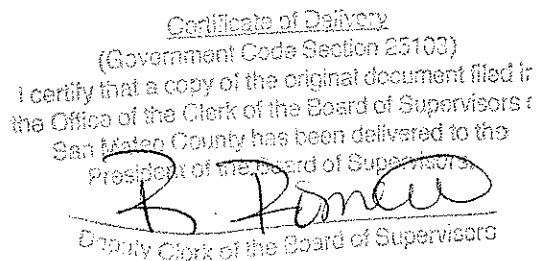 Certificate of Delivery
(Government Code Section 25103)
I certify that a copy of the original document filed in
the Office of the Clerk of the Board of Supervisors o
San Mateo County has been delivered to the
President of the Board of Supervisors.
R. Romero
Deputy Clerk of the Board of Supervisors